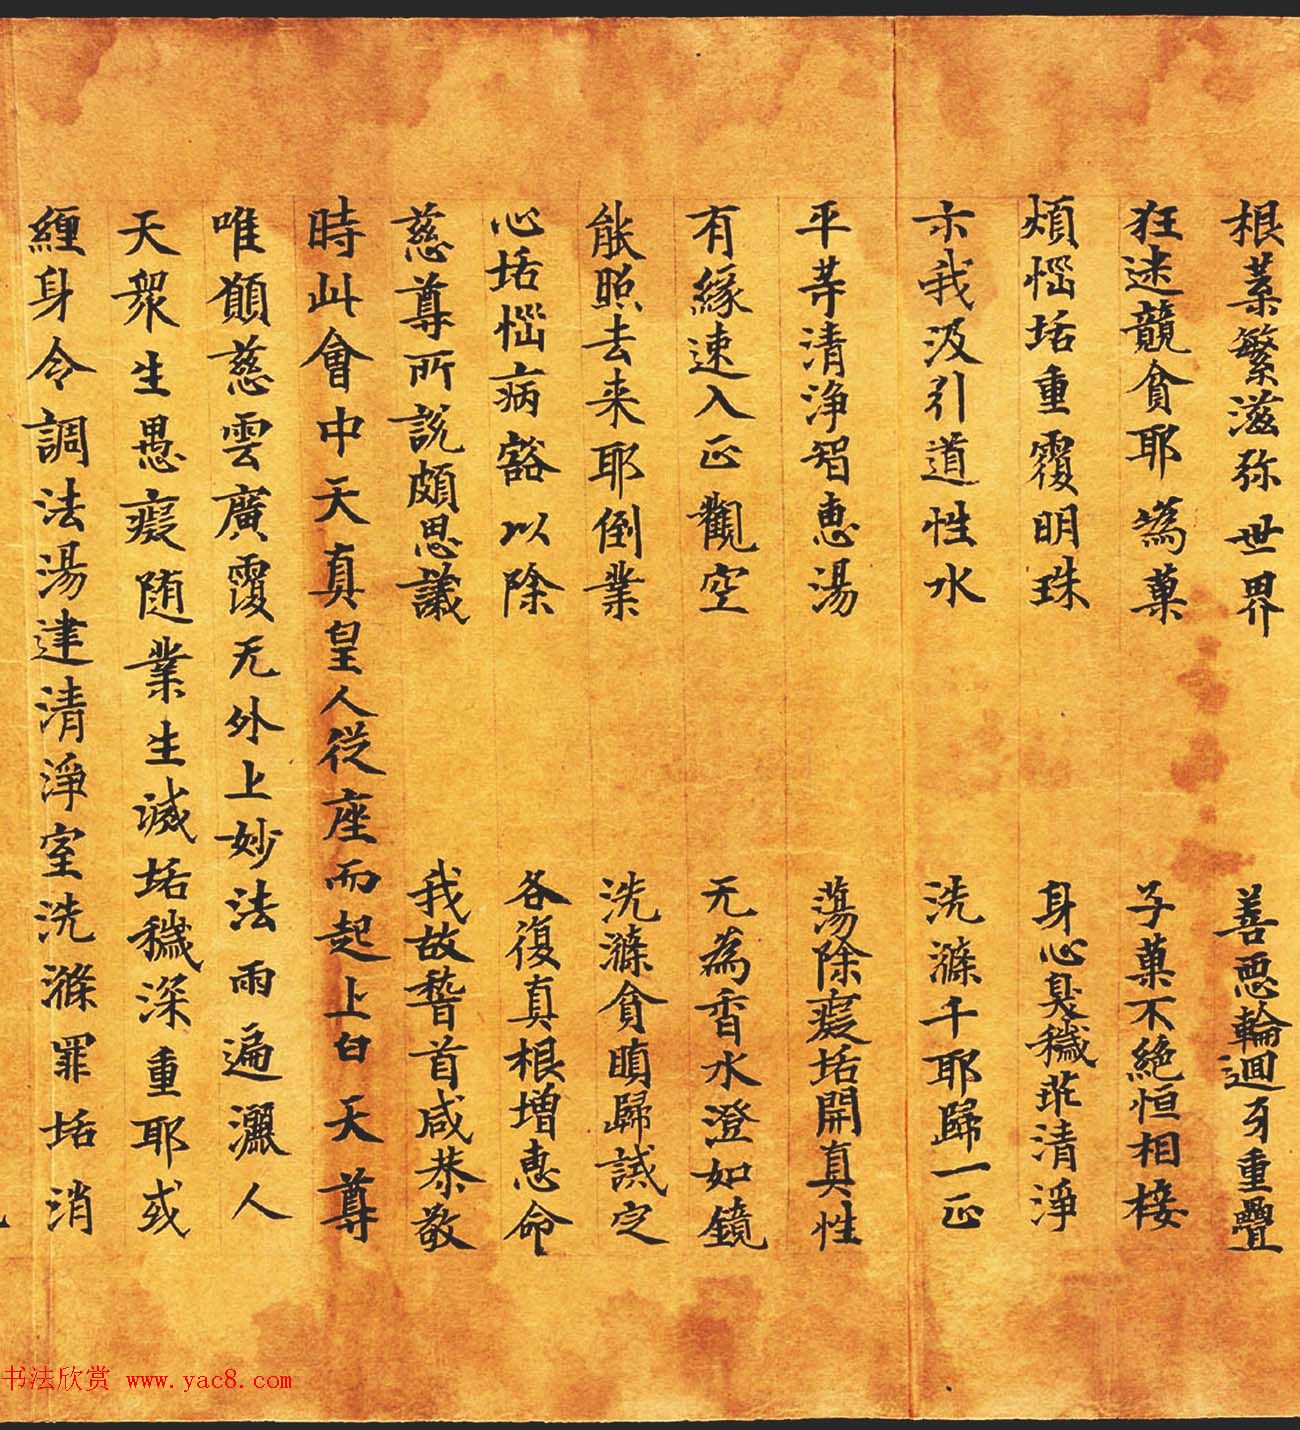 根葉繁滋弥世界　善惡輪迴乃重疊
狂迷競貪耶為菓　子菓不絕恒相接
煩惱垢重覆明珠　身心臭穢非清淨
示我汲引道性水　洗滌千耶歸一正
平等清淨智惠湯　蕩除癡垢開真性
有緣速入正觀空　无為香水澄如鏡
能照去来耶倒業　洗滌貪瞋歸誡定
心垢惱病豁以除　各復真根增惠命
慈尊所說頗思議　我故稽首咸恭敬
時此會中天真皇人從座而起上白天尊
唯願慈雲廣覆无外上妙法雨遍灑人
天衆生愚癡随業生滅垢穢深重耶或
纏身令調法湯建清淨室洗滌罪垢消
书法欣赏 www.yac8.com